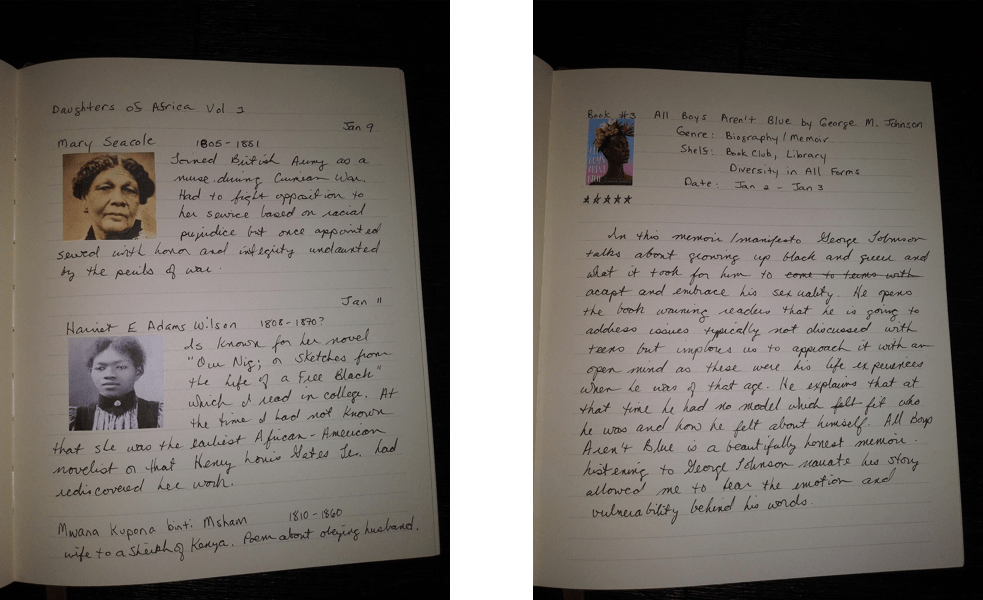 Daughters of Africa Vol 1
Jan 9
Mary Seacole 1805-1881
Joined British Army as a
nurse during Crimean War.
Had to fight opposition to
her service based on racial
prejudice but once appointed
served with honor and integrity undaunted
by the perils of war.
Jan 11
Harriet E Adams Wilson 1808-1870?
Is known for her novel
"Our Nig; or Sketches from
the Life of a Free Black"
which I read in college. At
the time I had not known
that she was the earliest African-American
novelist or that Henry Louis Gates Jr. had
rediscovered her work.
Mwana Kupona binti Msham 1810-1860
wife to a Sheikh of Kenya. Poem about obeying husband.
Book #3 All Boys Aren't Blue by George M. Johnson
Genre: Biography/Memoir
Shelf: Book Club, Library
Diversity in All Forms
Date: Jan 2 - Jan 3
★★★★★
In this memoir/manifesto George Johnson
talks about growing up black and queer and
what it took for him to come to terms with
acapt and embrace his sexuality. He opens
the book warning readers that he is going to
address issues typically not discussed with
teens but implores us to approach it with an
open mind as these were his life experiences
when he was of that age. He explains that at
that time he had no model which felt fit who
he was and how he felt about himself. All Boys
Aren't Blue is a beautifully honest memoir.
Listening to George Johnson narrate his story
allowed me to hear the emotion and
vulnerability behind his words.